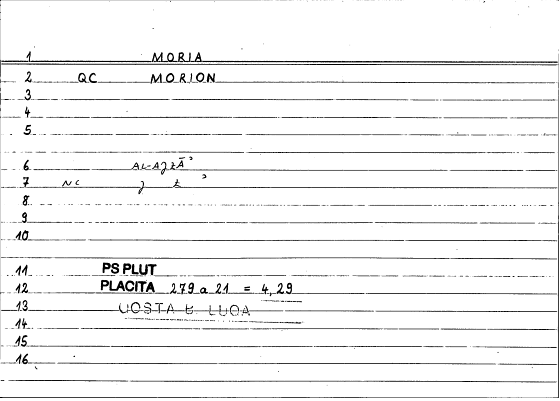 1 MORIA
2 QC MORION
3
4
5
6
7 NC
8
9
10
11 PS PLUT
12 PLACITA 279 a 21 = 4, 29
13 COSTA B LUCA
14
15
16